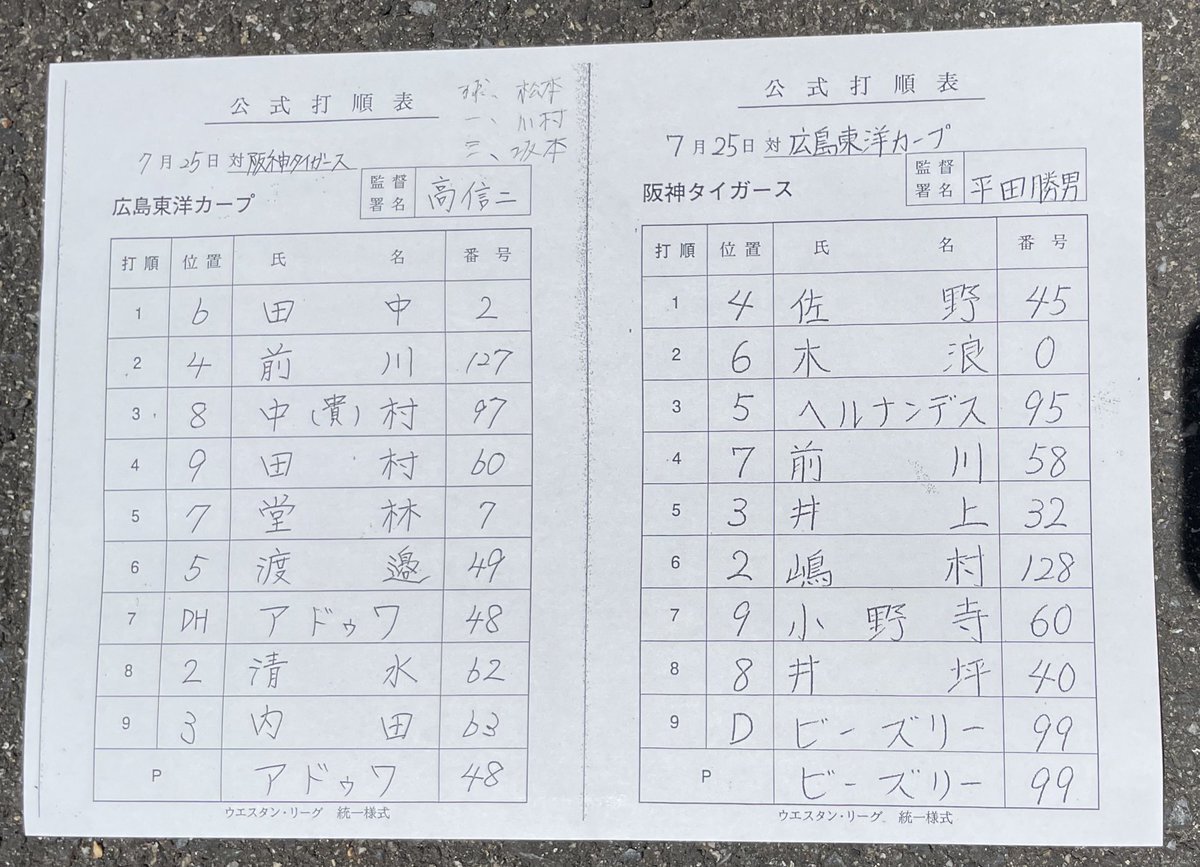 公式打順表
球、松本
一、川村
三、坂本
7月25日 対 阪神タイガース
広島東洋カープ
監督署名 高信二
打順 位置 氏名 番号
1 6 田中 2
2 4 前川 127
3 8 中(貴)村 97
4 9 田村 60
5 7 堂林 7
6 5 渡邉 49
7 DH アドゥワ 48
8 2 清水 62
9 3 内田 63
P アドゥワ 48
ウエスタン・リーグ 統一様式
公式打順表
7月25日 対 広島東洋カープ
阪神タイガース
監督署名 平田勝男
打順 位置 氏名 番号
1 4 佐野 45
2 6 木浪 0
3 5 ヘルナンデス 95
4 7 前川 58
5 3 井上 32
6 2 嶋村 128
7 9 小野寺 60
8 8 井坪 40
9 D ビーズリー 99
P ビーズリー 99
ウエスタン・リーグ 統一様式